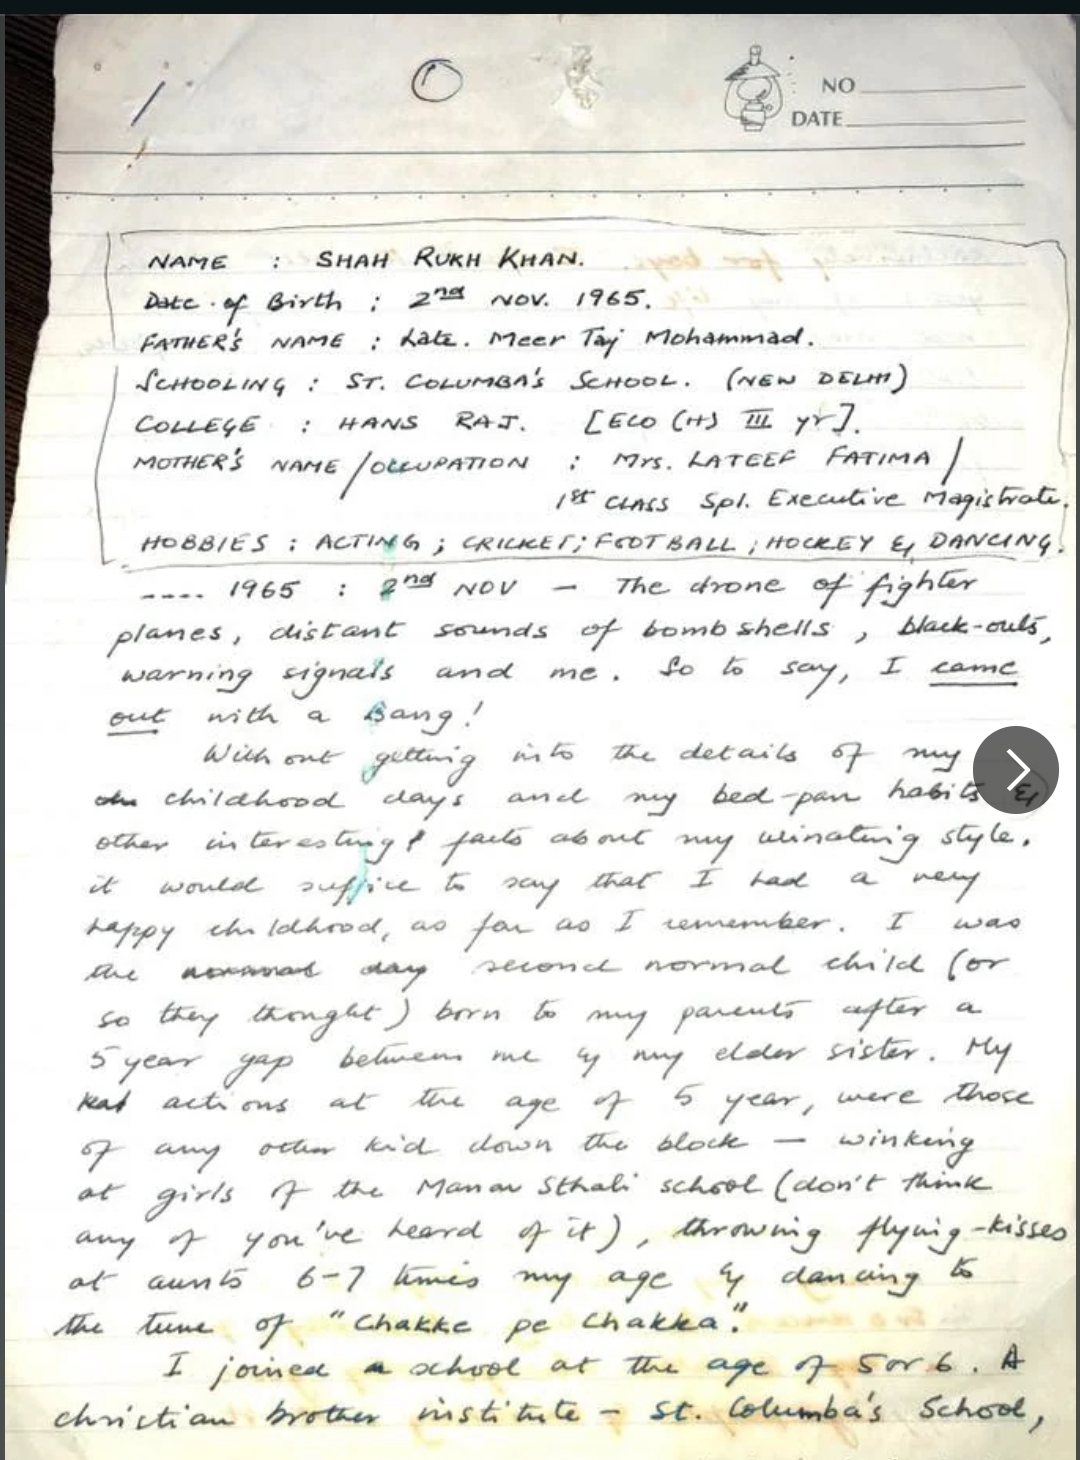 1
NO
DATE
NAME : SHAH RUKH KHAN.
Date of Birth : 2nd NOV. 1965.
FATHER'S NAME : Late. Meer Taj Mohammad.
SCHOOLING : ST. COLUMBA'S SCHOOL. (NEW DELHI)
COLLEGE : HANS RAJ. [ECO (H) III yr].
MOTHER'S NAME/OCCUPATION : Mrs. LATEEF FATIMA /
1st CLASS Spl. Executive Magistrate.
HOBBIES : ACTING ; CRICKET; FOOTBALL ; HOCKEY & DANCING.
---- 1965 : 2nd NOV - The drone of fighter
planes, distant sounds of bomb shells, black-outs,
warning signals and me. So to say, I came
out with a Bang!
Without getting into the details of my
childhood days and my bed-pan habits &
other interesting facts about my urinating style.
it would suffice to say that I had a very
happy childhood, as far as I remember. I was
the normal day second normal child (or
so they thought) born to my parents after a
5 year gap between me & my elder sister. My
actions at the age of 5 year, were those
of any other kid down the block - winking
at girls of the Manav Sthali school (don't think
any of you've heard of it), throwing flying-kisses
at aunts 6-7 times my age & dancing to
the tune of "Chakke pe Chakka".
I joined a school at the age of 5 or 6. A
christian brother institute - St. Columba's School,